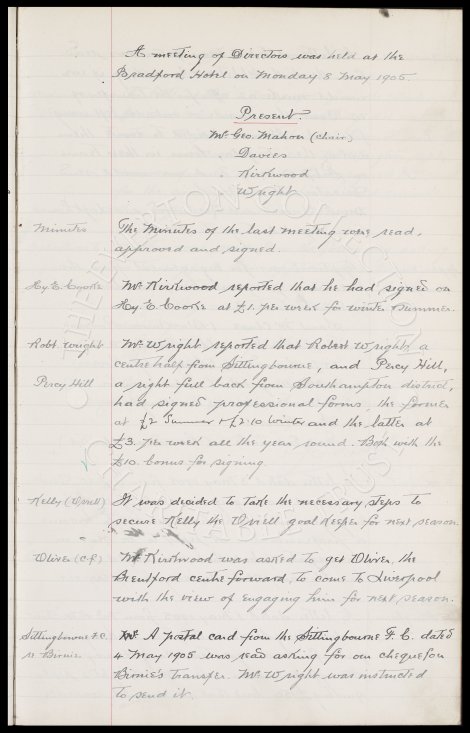 A meeting of Directors was held at the
Bradford Hotel on Monday 8 May 1905.
Present.
Mr Geo. Mahon (chair)
Davies
Kirkwood
Wright
Minutes
The Minutes of the last meeting were read,
approved and signed.
Hy. E. Cooke
Mr Kirkwood reported that he had signed on
Hy. E. Cooke at £1. per week for winter & summer.
Robt. Wright
Mr Wright reported that Robert Wright, a
centre half from Sittingbourne, and Percy Hill,
Percy Hill
a right full back from Southampton district,
had signed professional forms, the former
at £2 Summer & £2.10 Winter and the latter at
£3. per week all the year round. Both with the
£10. bonus for signing.
Kelly (Orrell)
It was decided to take the necessary steps to
secure Kelly the Orrell goal keeper for next season.
Oliver (c.f)
Mr Kirkwood was asked to get Oliver, the
Brentford centre forward, to come to Liverpool
with the view of engaging him for next season.
Sittingbourne F.C.
A postal card from the Sittingbourne F. C. dated
Birnie
4 May 1905 was read asking for our cheque for
Birnie's transfer. Mr Wright was instructed
to send it.